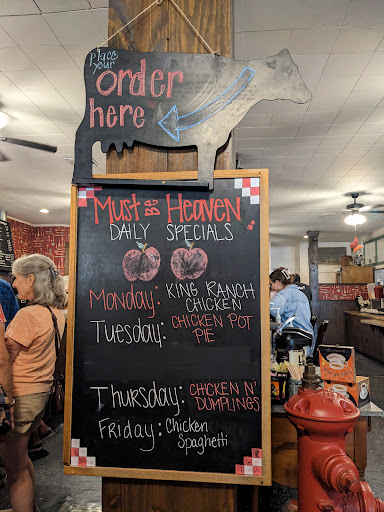 Place
Your
order
here
Must Be Heaven
Daily Specials
Monday: King Ranch
Chicken
Tuesday: Chicken Pot
Pie
Thursday: Chicken n'
Dumplings
Friday: Chicken
Spaghetti